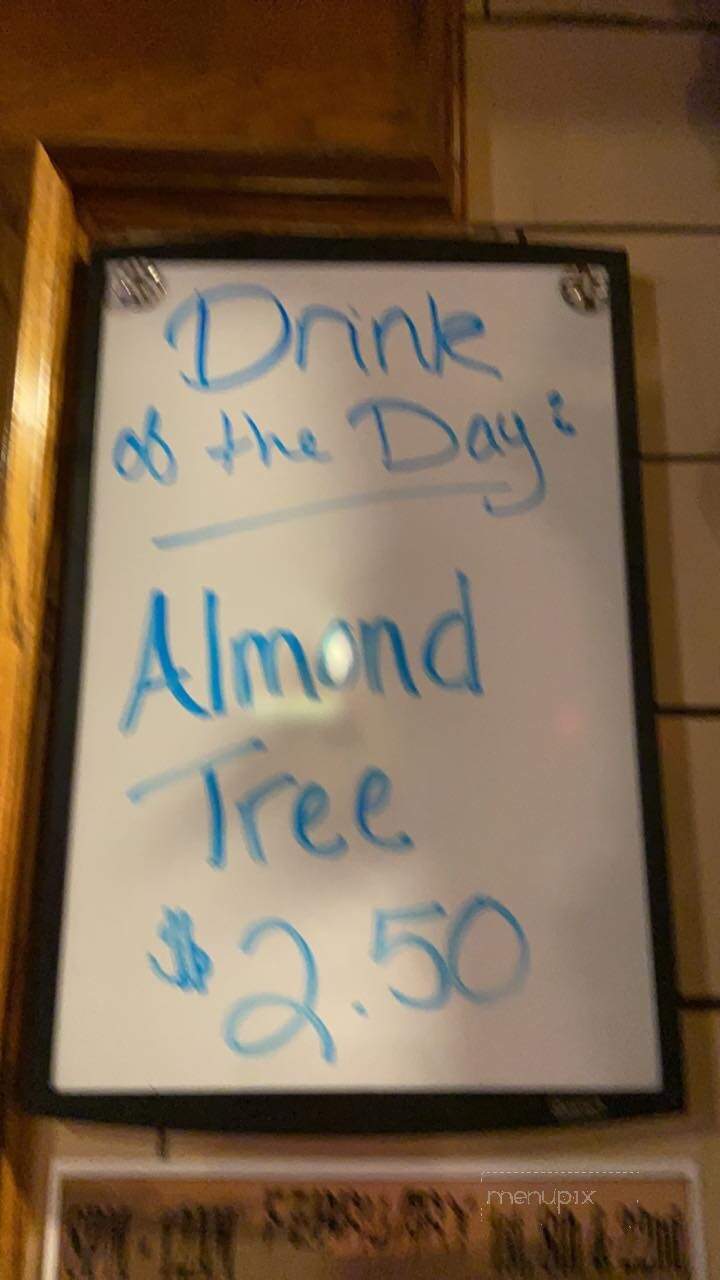 Drink
of the Day:
Almond
Tree
$2.50
menupix